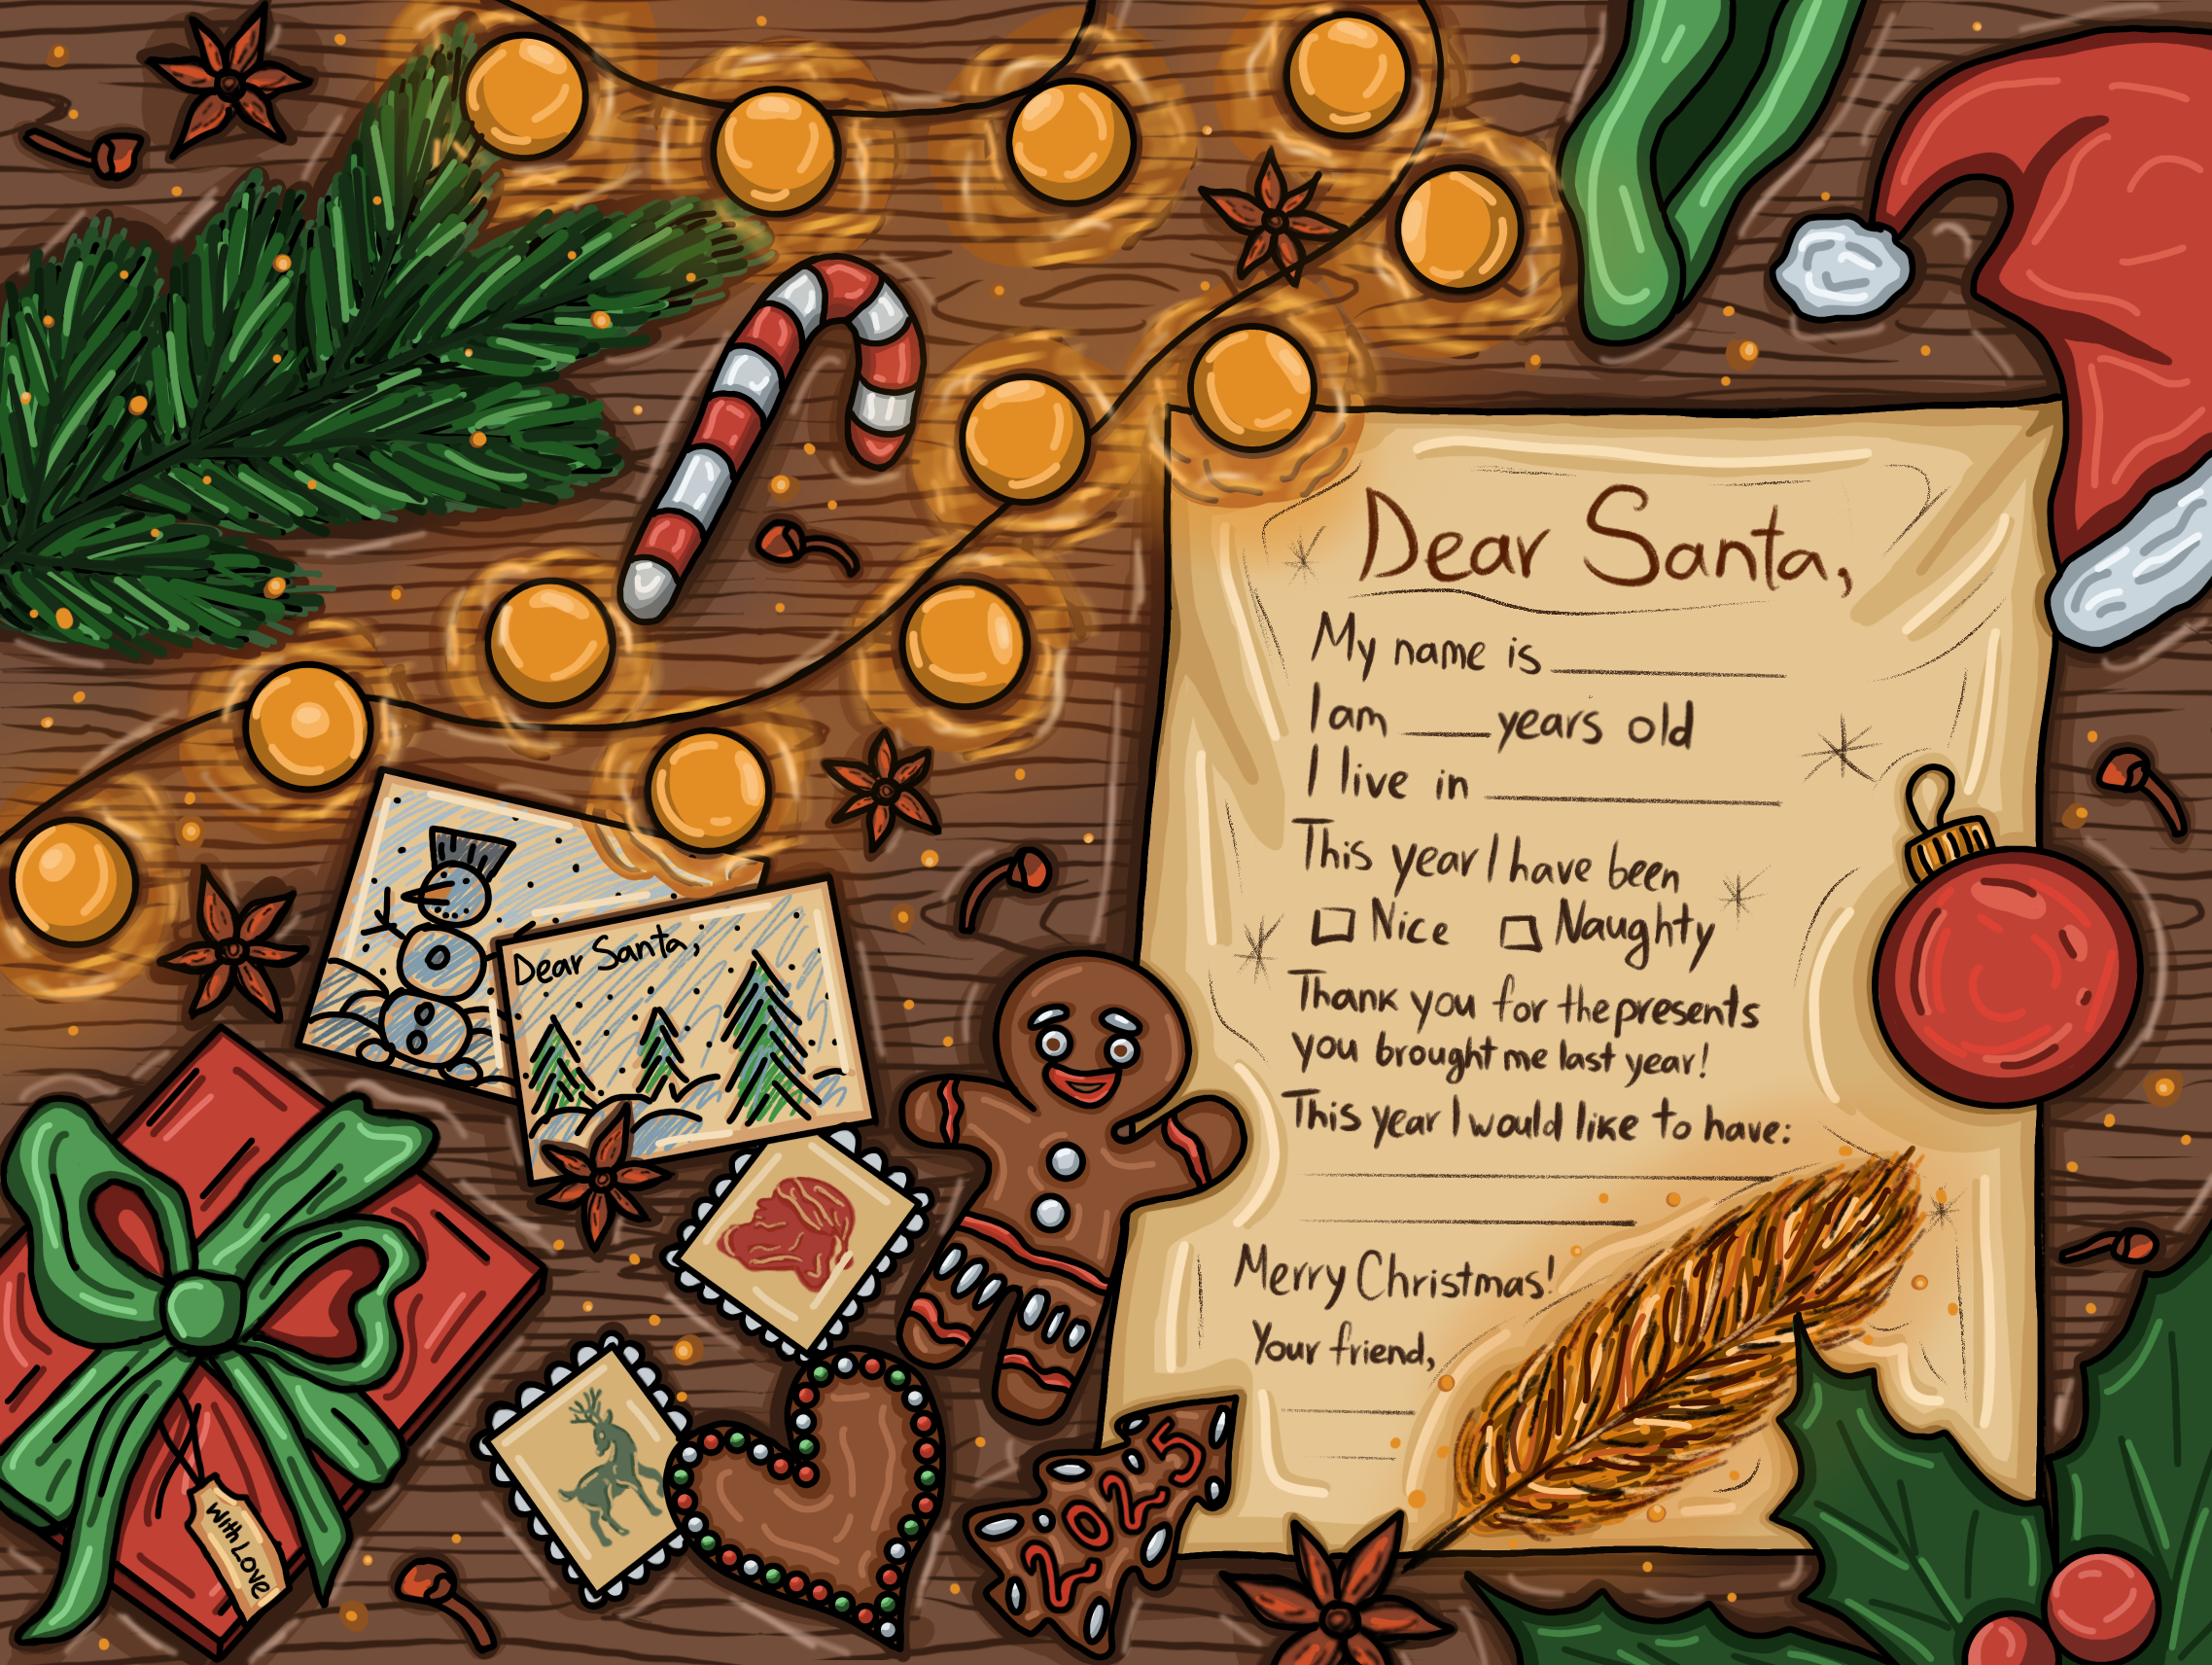 Dear Santa,
My name is
I am ____ years old
I live in
This year I have been
Nice Naughty
Thank you for the presents
you brought me last year!
This year I would like to have:
Merry Christmas!
Your friend,
Dear Santa,
2025
With Love